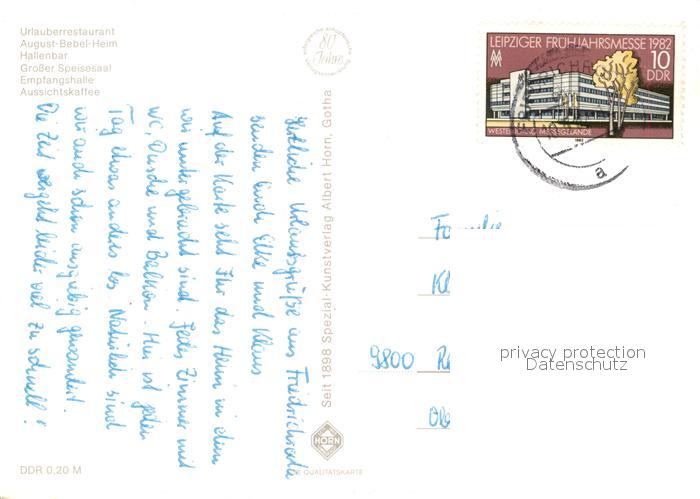 Urlauberrestaurant
August-Bebel-Heim
Hallenbar
Großer Speisesaal
Empfangshalle
Aussichtskaffee
Herzliche Urlaubsgrüße aus Friedrichroda
senden Euch Elke und Klaus.
Auf der Karte seht Ihr das Heim in dem
wir untergebracht sind. Jedes Zimmer mit
WC, Dusche und Balkon. Hier ist jeden
Tag etwas anders los. Natürlich sind
wir auch schon ausgiebig gewandert.
Die Zeit vergeht leider viel zu schnell!
DDR 0,20 M
80 Jahre
Seit 1898 Spezial-Kunstverlag Albert Horn, Gotha
HORN
QUALITÄTSKARTE
LEIPZIGER FRÜHJAHRSMESSE 1982
MM
10
DDR
WESTEINGANG MESSEGELÄNDE
1982
a
Familie
Kl
9800 R
privacy protection
Datenschutz